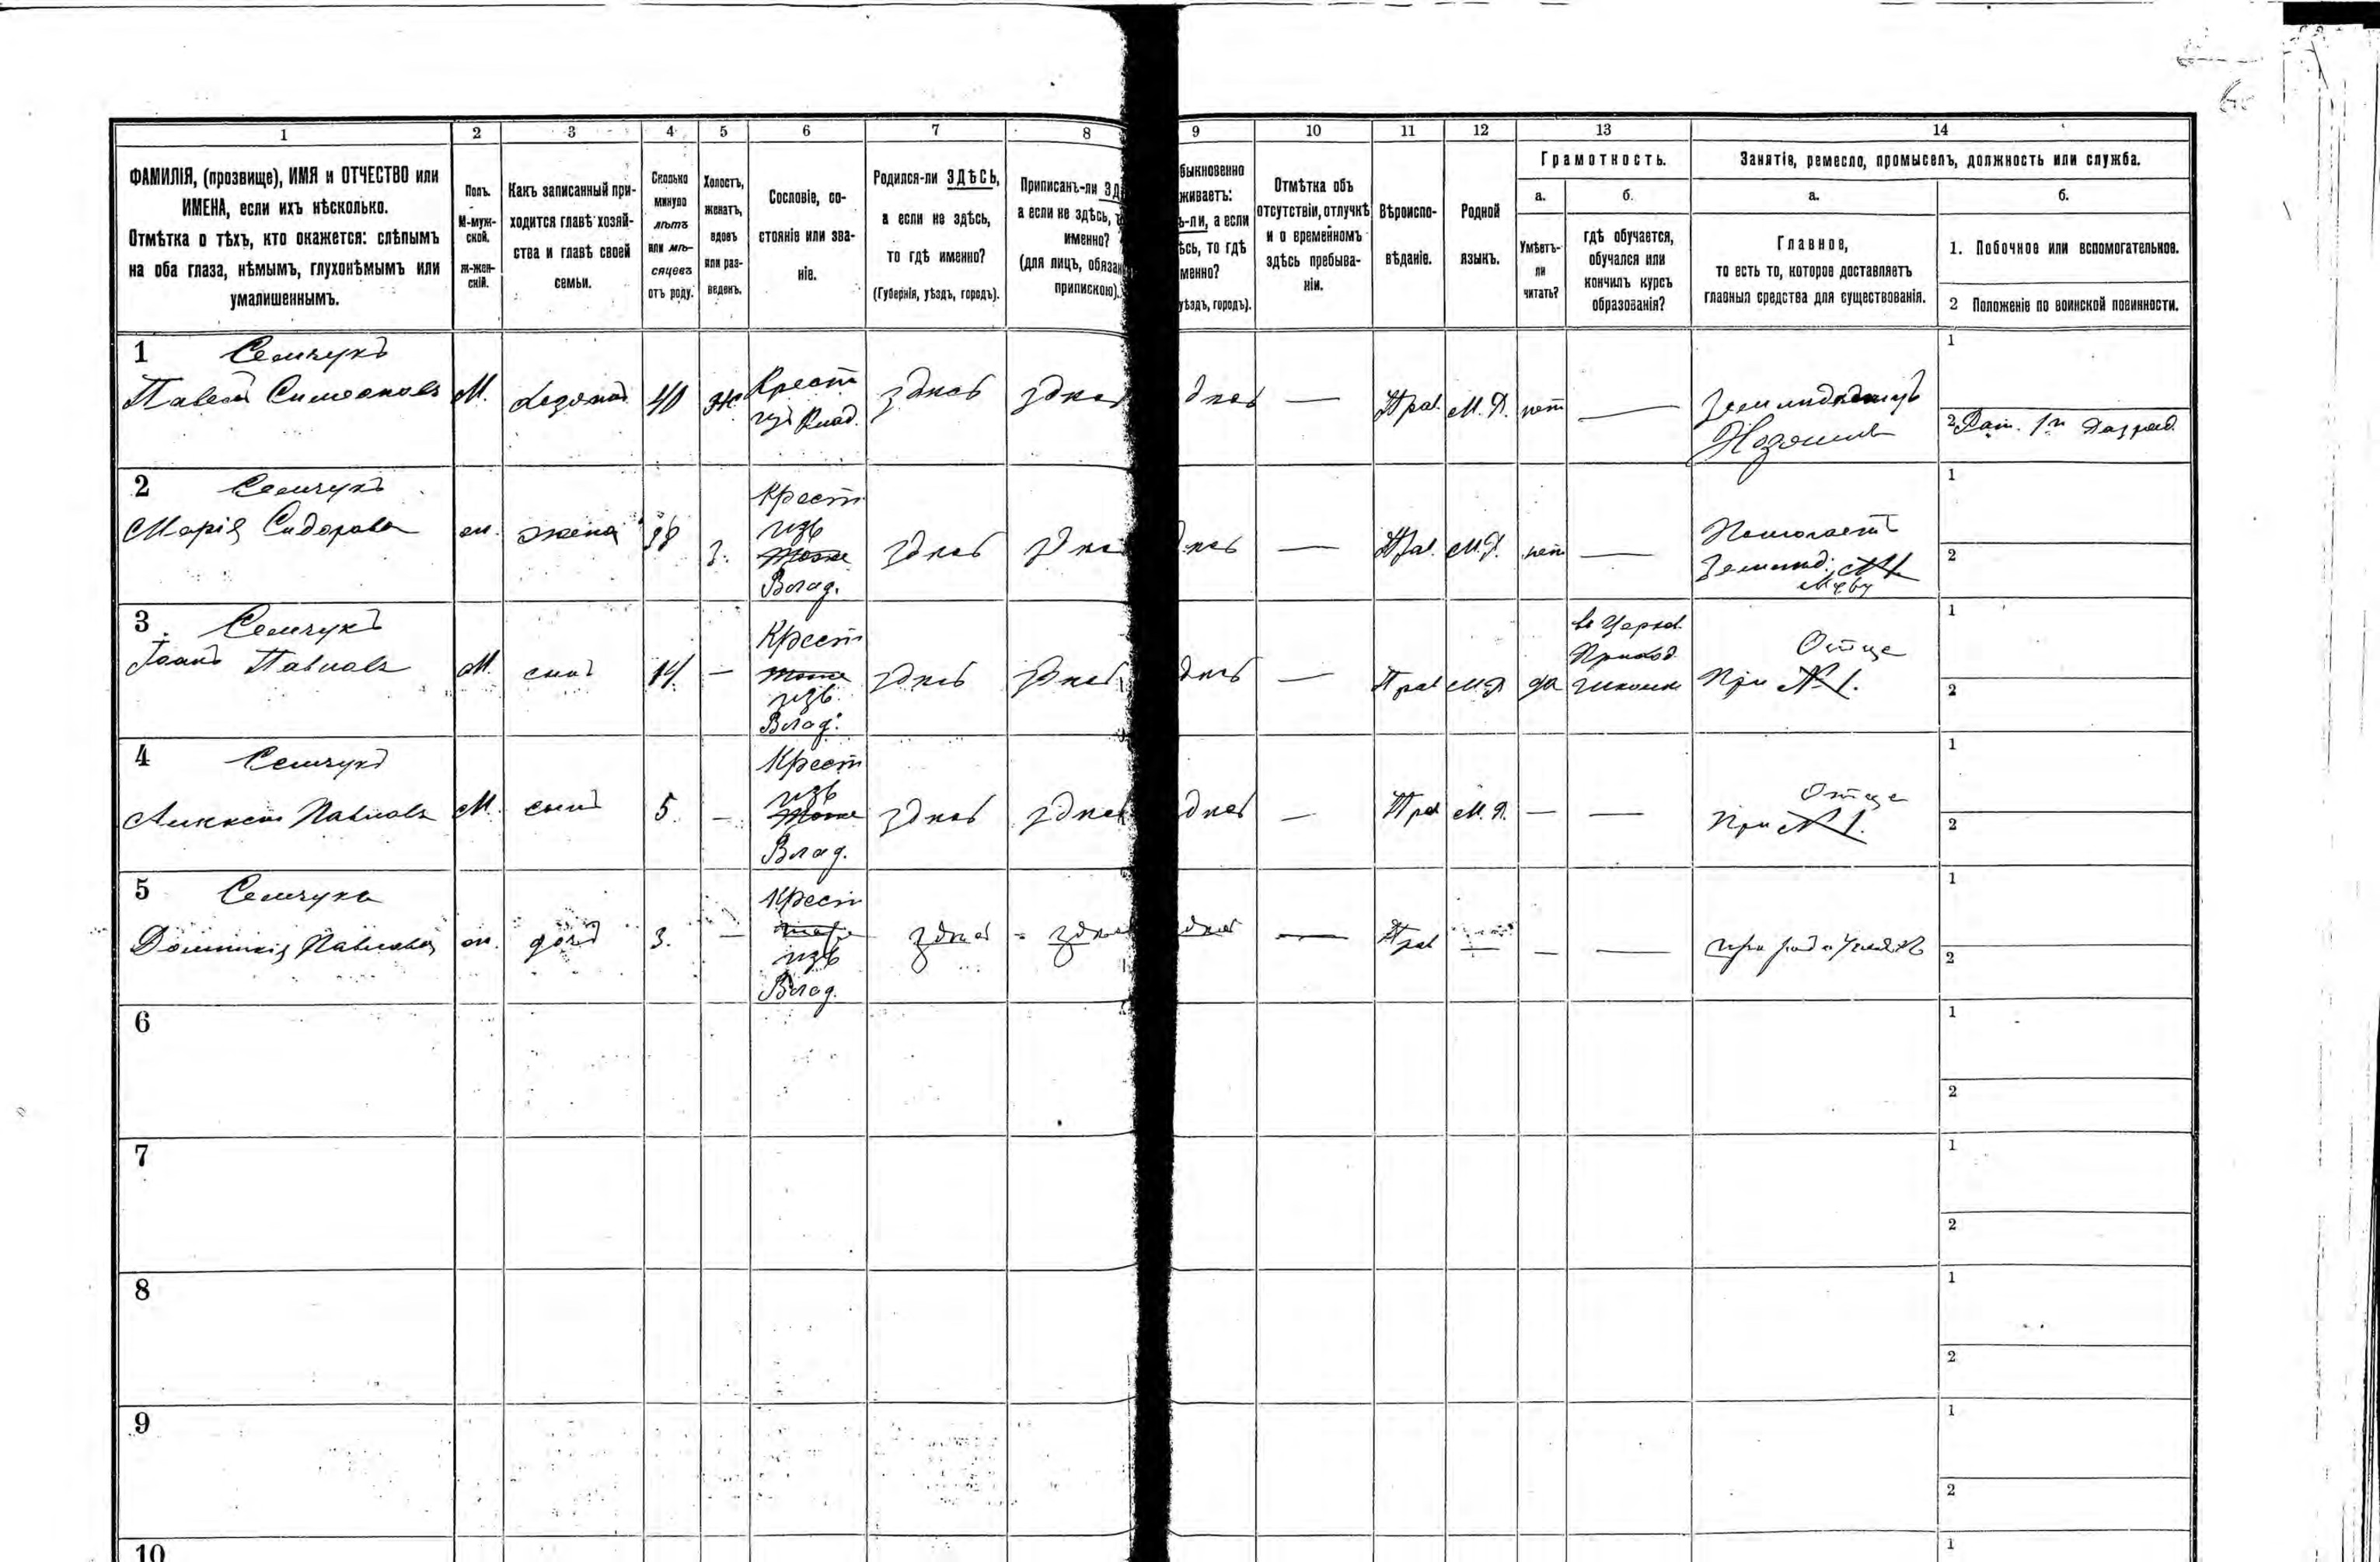 1 2 3 4 5 6 7 8 9 10 11 12 13 14
ФАМИЛІЯ, (прозвище), ИМЯ и ОТЧЕСТВО или
ИМЕНА, если ихъ нѣсколько.
Отмѣтка о тѣхъ, кто окажется: слѣпымъ
на оба глаза, нѣмымъ, глухонѣмымъ или
умалишеннымъ.
Полъ.
М-муж-
ской.
ж-жен-
скій.
Какъ записанный при-
ходится главѣ хозяй-
ства и главѣ своей
семьи.
Сколько
минуло
лѣтъ
или мѣ-
сяцевъ
отъ роду.
Холостъ,
женатъ,
вдовъ
или раз-
веденъ.
Сословіе, со-
стояніе или зва-
ніе.
Родился-ли ЗДѢСЬ,
а если не здѣсь,
то гдѣ именно?
(Губернія, уѣздъ, городъ).
Приписанъ-ли ЗД
а если не здѣсь, т
именно?
(для лицъ, обязан
припискою).
быкновенно
живаетъ:
ь-ли, а если
ѣсь, то гдѣ
менно?
уѣздъ, городъ).
Отмѣтка объ
отсутствіи, отлучкѣ
и о временномъ
здѣсь пребыва-
ніи.
Вѣроиспо-
вѣданіе.
Родной
языкъ.
Грамотность.
а.
Умѣетъ-
ли
читать?
б.
гдѣ обучается,
обучался или
кончилъ курсъ
образованія?
Занятія, ремесло, промыселъ, должность или служба.
а.
Главное,
то есть то, которое доставляетъ
главныя средства для существованія.
б.
1. Побочное или вспомогательное.
2 Положеніе по воинской повинности.
1 Семчукъ
Павелъ Симеоновъ М. 40 Ж. Крест изъ Влад. здѣсь здѣс дѣсь — Прав. М. Р. нет —
Земледѣлецъ
Хозяинъ
1
2 Рат. 1го разряд.
2 Семчукъ
Марія Сидорова ж. жена 38 З. Крест изъ Тоже Влад. здѣсь здѣс дѣсь — Прав. М. Р. нет —
Помогаетъ
Земледѣ. М1
Мужу
1
2
3 Семчукъ
Іоанъ Павловъ М. сынъ 14 — Крест тоже изъ Влад. здѣсь здѣсь дѣсь — Прав М Р да
в Церков.
Приход.
школѣ
Отце
При №1.
1
2
4 Семчукъ
Алексѣй Павловъ М. сынъ 5. — Крест изъ Тоже Влад. здѣсь здѣсь дѣсь — Прав М. Р. — —
Отце
При №1.
1
2
5 Семчукъ
Доминикія Павлова ж. дочь 3. — Крест изъ Влад. здѣсь здѣсь дѣсь — Прав — — —
при родителяхъ
1
2
6
1
2
7
1
2
8
1
2
9
1
2
10
1